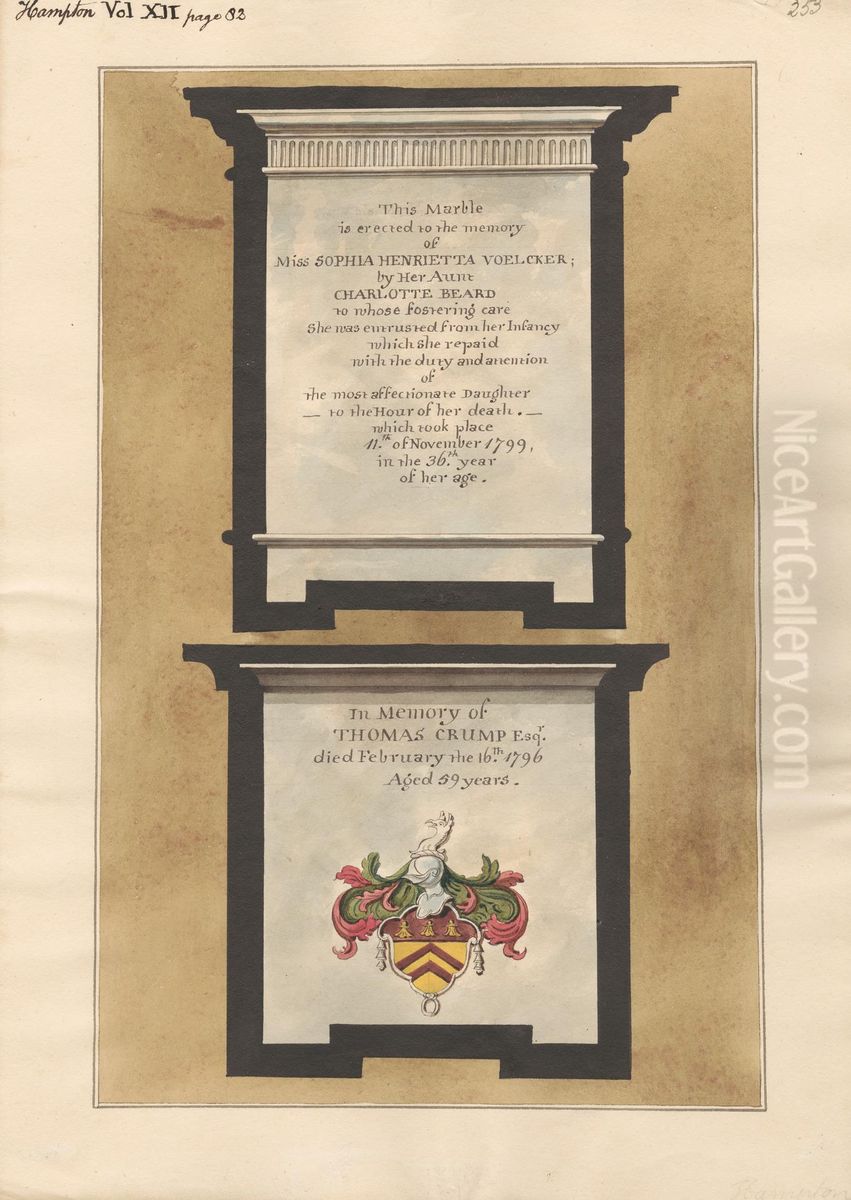 Hampton Vol XII page 82
253
This Marble
is erected to the memory
of
Miss SOPHIA HENRIETTA VOELCKER;
by Her Aunt
CHARLOTTE BEARD
to whose fostering care
She was entrusted from her Infancy
which She repaid
with the duty and attention
of
the most affectionate Daughter
— to the Hour of her death. —
which took place
11.th of November 1799,
in the 36.th year
of her age.
In Memory of
THOMAS CRUMP Esqr.
died February the 16.th 1796
Aged 59 years.
NiceArtGallery.com